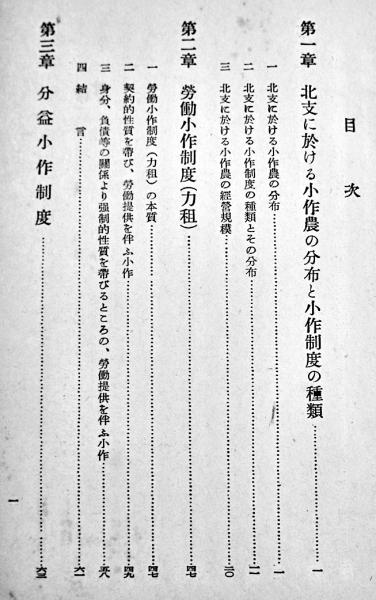 目次
第一章 北支に於ける小作農の分布と小作制度の種類……一
一 北支に於ける小作農の分布……一
二 北支に於ける小作制度の種類とその分布……一一
三 北支に於ける小作農の經營規模……三〇
第二章 勞働小作制度(力租)……四七
一 勞働小作制度(力租)の本質……四七
二 契約的性質を帶び、勞働提供を伴ふ小作……四九
三 身分、負債等の關係より强制的性質を帶びるところの、勞働提供を伴ふ小作……五八
四 結言……六一
第三章 分益小作制度……六三
一